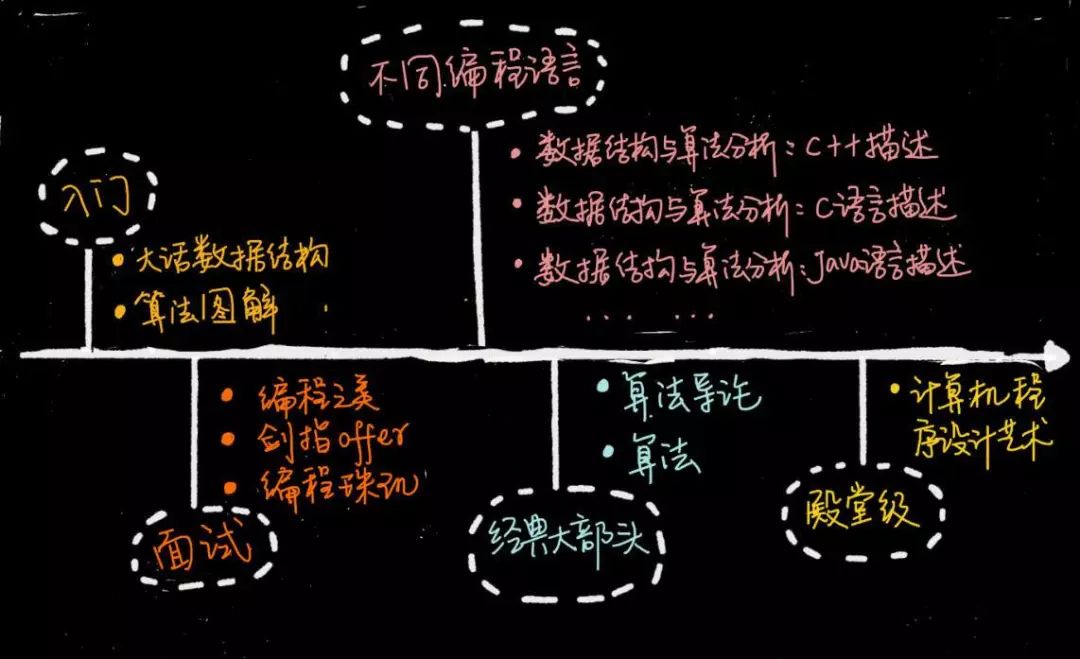 不同编程语言
• 数据结构与算法分析：C++描述
• 数据结构与算法分析：C语言描述
• 数据结构与算法分析：Java语言描述
... ...
入门
• 大话数据结构
• 算法图解
• 编程之美
• 剑指offer
• 编程珠玑
面试
• 算法导论
• 算法
经典大部头
• 计算机程
序设计艺术
殿堂级